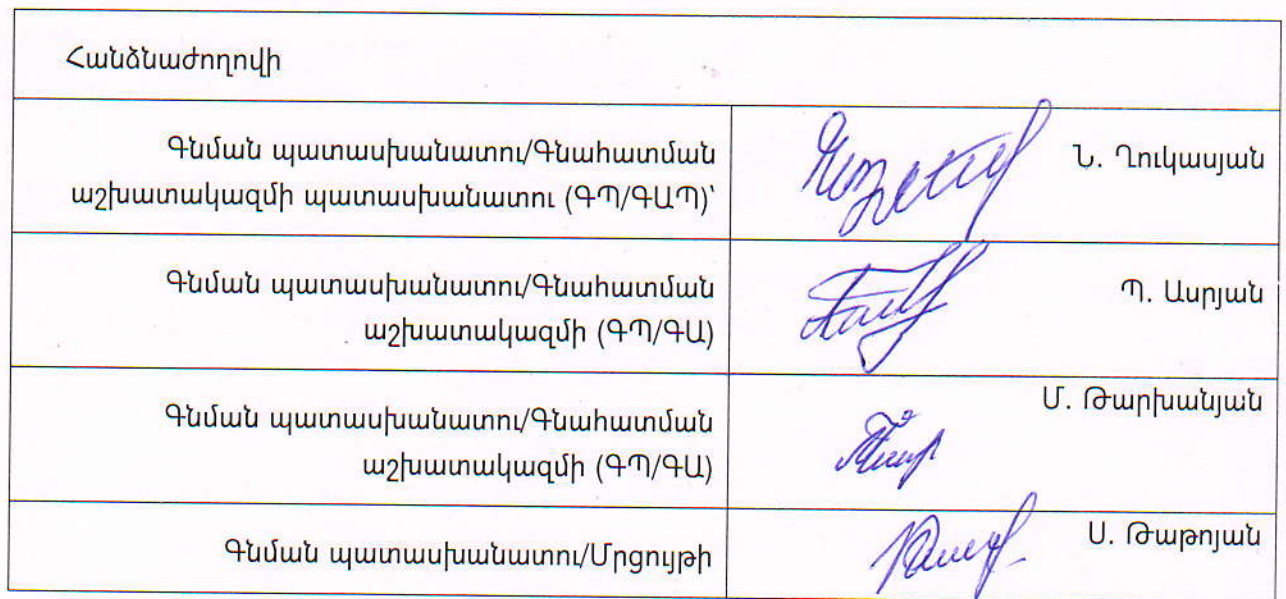 Հանձնաժողովի
Գնման պատասխանատու/Գնահատման
աշխատակազմի պատասխանատու (ԳՊ/ԳԱՊ)՝
Ն. Ղուկասյան
Գնման պատասխանատու/Գնահատման
աշխատակազմի (ԳՊ/ԳԱ)
Պ. Ասրյան
Գնման պատասխանատու/Գնահատման
աշխատակազմի (ԳՊ/ԳԱ)
Մ. Թարխանյան
Գնման պատասխանատու/Մրցույթի
Ս. Թաթոյան